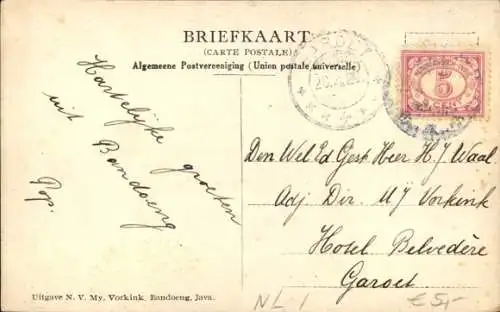 BRIEFKAART
(CARTE POSTALE)
Algemeene Postvereeniging (Union postale universelle)
5
CENT
Hartelijke groeten
uit Bandoeng.
Pop.
Den Wel Ed Gest Heer H J Waal
Adj Dir. MY Vorkink
Hotel Belvedère
Garoet
Uitgave N. V. My. Vorkink, Bandoeng, Java.
NL 1
€5,-